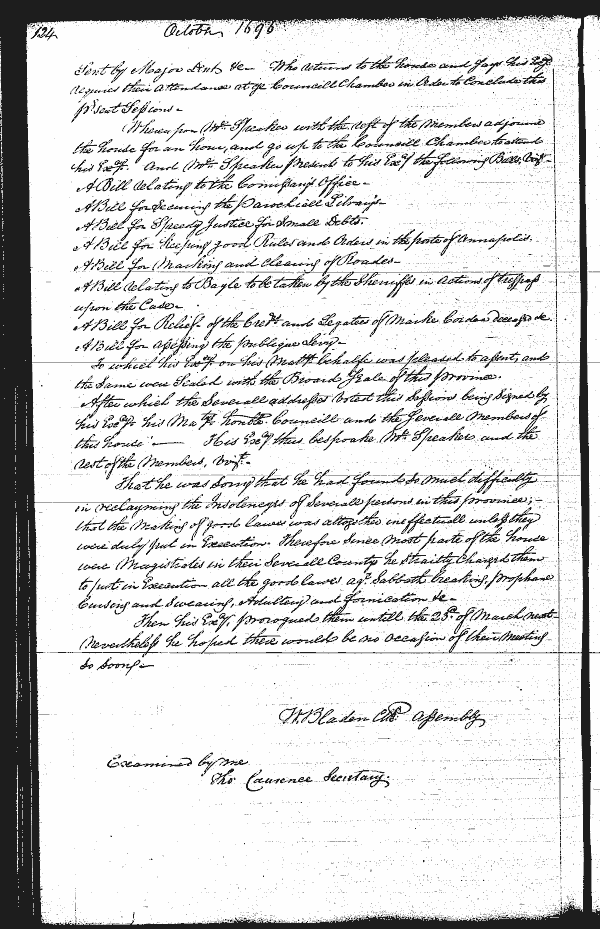 124
October 1696
Sent by Major Dent &c Who returns to the house and says his Exy
requires their attendance at ye Councill Chamber in Order to Conclude this
p'sent Sessions -
Whereupon Mr Speaker with the rest of the members adjourne
the house for an hour, and go up to the Councill Chamber to attend
his Exy. And Mr Speaker present to his Exy the following Bills, vizt -
A Bill relating to the Comissarys Office -
A Bill for Securing the Parochiall Librarys -
A Bill for Speedy Justice for Small Debts.
A Bill for keeping good Rules and Orders in the porte of Annapolis.
A Bill for Marking and Clearing of Roades -
A Bill relating to Bayle to be taken by the Sherriffes in actions of tresspass
upon the Case -
A Bill for Relief of the Credrs and Legatees of Marke Cordea deceased &c
A Bill for assessing the publique Levy -
To which his Exy on his Matys behalfe was pleased to assent, and
the Same were Sealed with the Broad Seale of this Province.
After which the Severall addresses Voted this Sessions being Signed by
his Exy his Matys honble Councill and the Severall Members of
this house - His Exy thus bespoake Mr Speaker and the
rest of the Members, vizt -
That he was Sorry that he had found So much difficulty
in reclayming the Insolencys of Severall persons in this province; -
that the Making of good lawes was altogether ineffectuall unless they
were duly put in Execution. Therefore Since most parte of the house
were Magistrates in their Severall County he Straitly Charged them
to put in Execution all the good lawes agt Sabboth breaking, prophane
Cursing and Swearing, Adultery and fornication &c -
Then his Exy prorogued them untill the 25th of March next
Nevertheless he hoped there would be no occasion of their meeting
So Soone -
W. Bladen Clk Assembly
Examined by me
Tho Laurence Secretary.